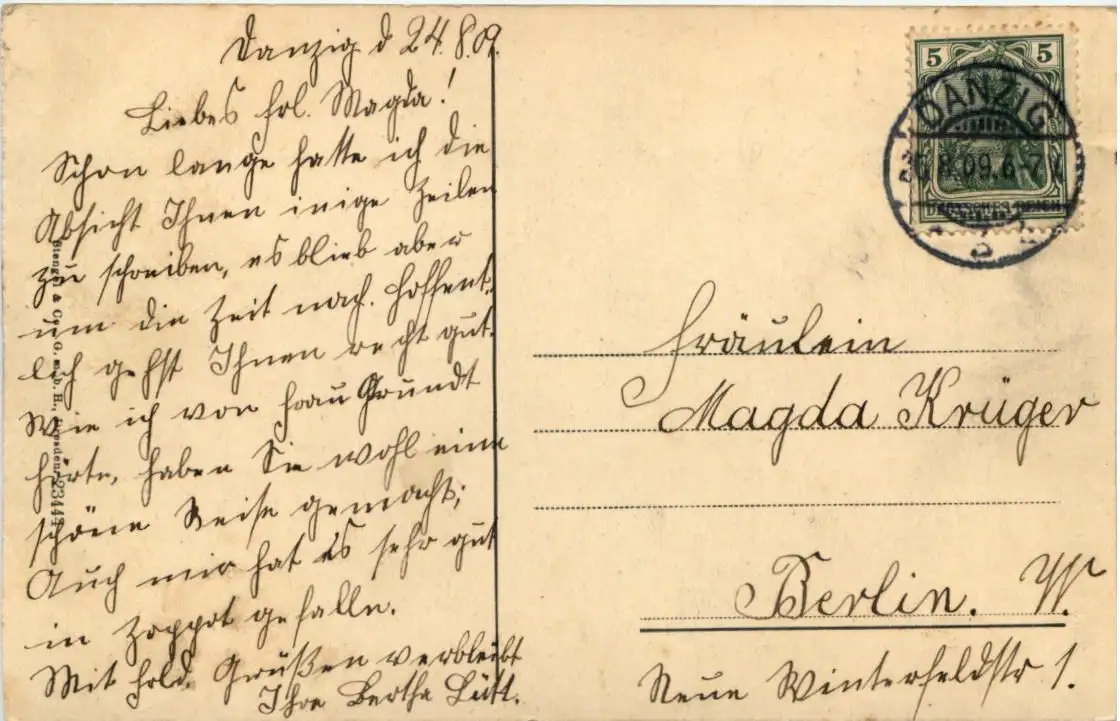 Danzig d 24.8.09.
Liebes Frl. Magda!
Schon lange hatte ich die
Absicht Ihnen einige Zeilen
zu schreiben, es blieb aber
um die Zeit nach. Hoffent-
lich gehst Ihnen recht gut.
Wie ich von Frau Grundt
hörte, haben Sie wohl eine
schöne Reise gemacht;
Auch mir hat es sehr gut
in Zoppot gefallen.
Mit frdl. Grüßen verbleibt
Ihre Bertha Lütt.
Stengel & Co., G. m. b. H., Dresden 2344
5 5
DANZIG
8.09.6-7
DEUTSCHES REICH
Fräulein
Magda Krüger
Berlin. W.
Neue Winterfeldstr 1.